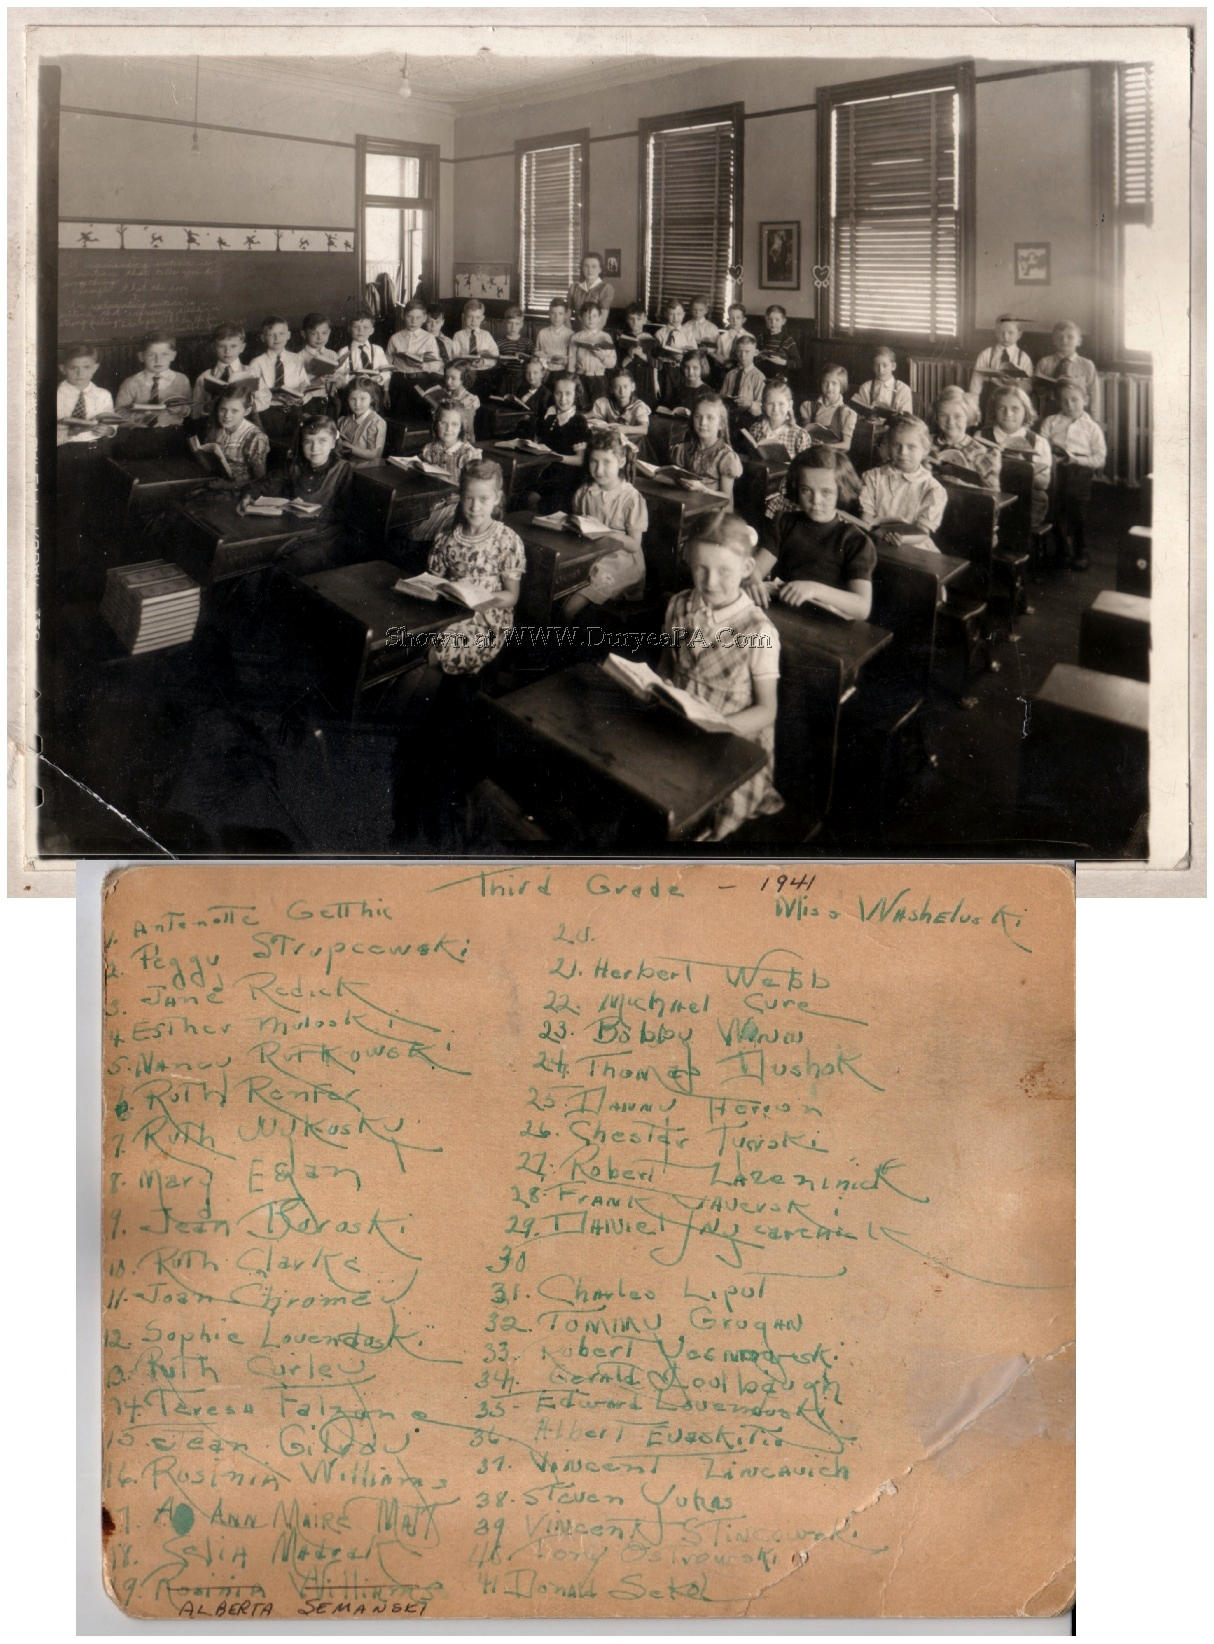 Shown at WWW.DuryeaPA.Com
Third Grade - 1941
Miss Washeluski
1. Antonette Getthic
2. Peggy Strupcewski
3. Jane Redick
4. Esther Muloski
5. Nancy Rutkowski
6. Ruth Renfer
7. Ruth Wykosky
8. Mary Egan
9. Jean Boroski
10. Ruth Clarke
11. Joan Chromey
12. Sophie Lovendoski
13. Ruth Curley
14. Teresa Falzone
15. Jean Gilroy
16. Rosinia Williams
17. Ann Maire Matt
18. Selia Madrak
19. Rosinia Williams
ALBERTA SEMANSKI
20.
21. Herbert Webb
22. Michael Cure
23. Bobby Winn
24. Thomas Dushok
25. Danny Herron
26. Chester Tunski
27. Robert Lazeninick
28. Frank
29. Daniel
30
31. Charles Liput
32. Tommy Grogan
33. Robert
34. Gerald
35. Edward Lovendusky
36. Albert
37. Vincent Lincavich
38. Steven Yukas
39 Vincent Stincowski
40. Tony Ostrowski
41 Donald Sekol